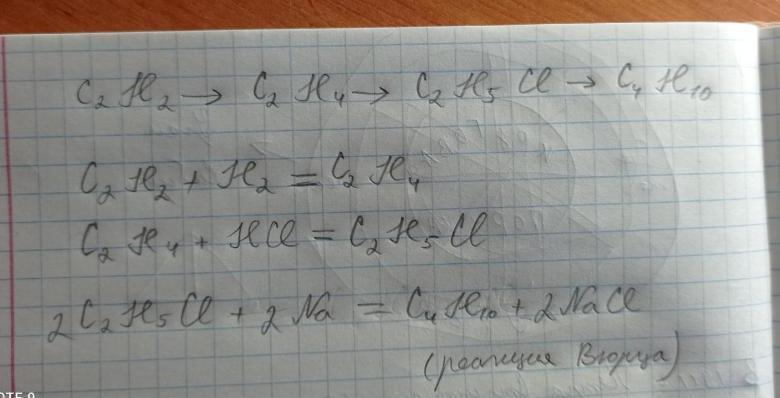 C₂H₂ → C₂H₄ → C₂H₅Cl → C₄H₁₀
C₂H₂ + H₂ = C₂H₄
C₂H₄ + HCl = C₂H₅Cl
2C₂H₅Cl + 2Na = C₄H₁₀ + 2NaCl
(реакция Вюрца)